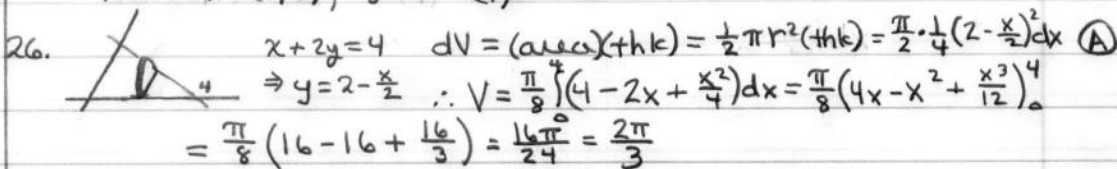 26. 4 x + 2y = 4 dV = (area)(thk) = ½πr²(thk) = π/2 · 1/4 (2 - x/2)² dx Ⓐ
⇒ y = 2 - x/2 ∴ V = π/8 ∫₀⁴ (4 - 2x + x²/4) dx = π/8 (4x - x² + x³/12)₀⁴
= π/8 (16 - 16 + 16/3) = 16π/24 = 2π/3